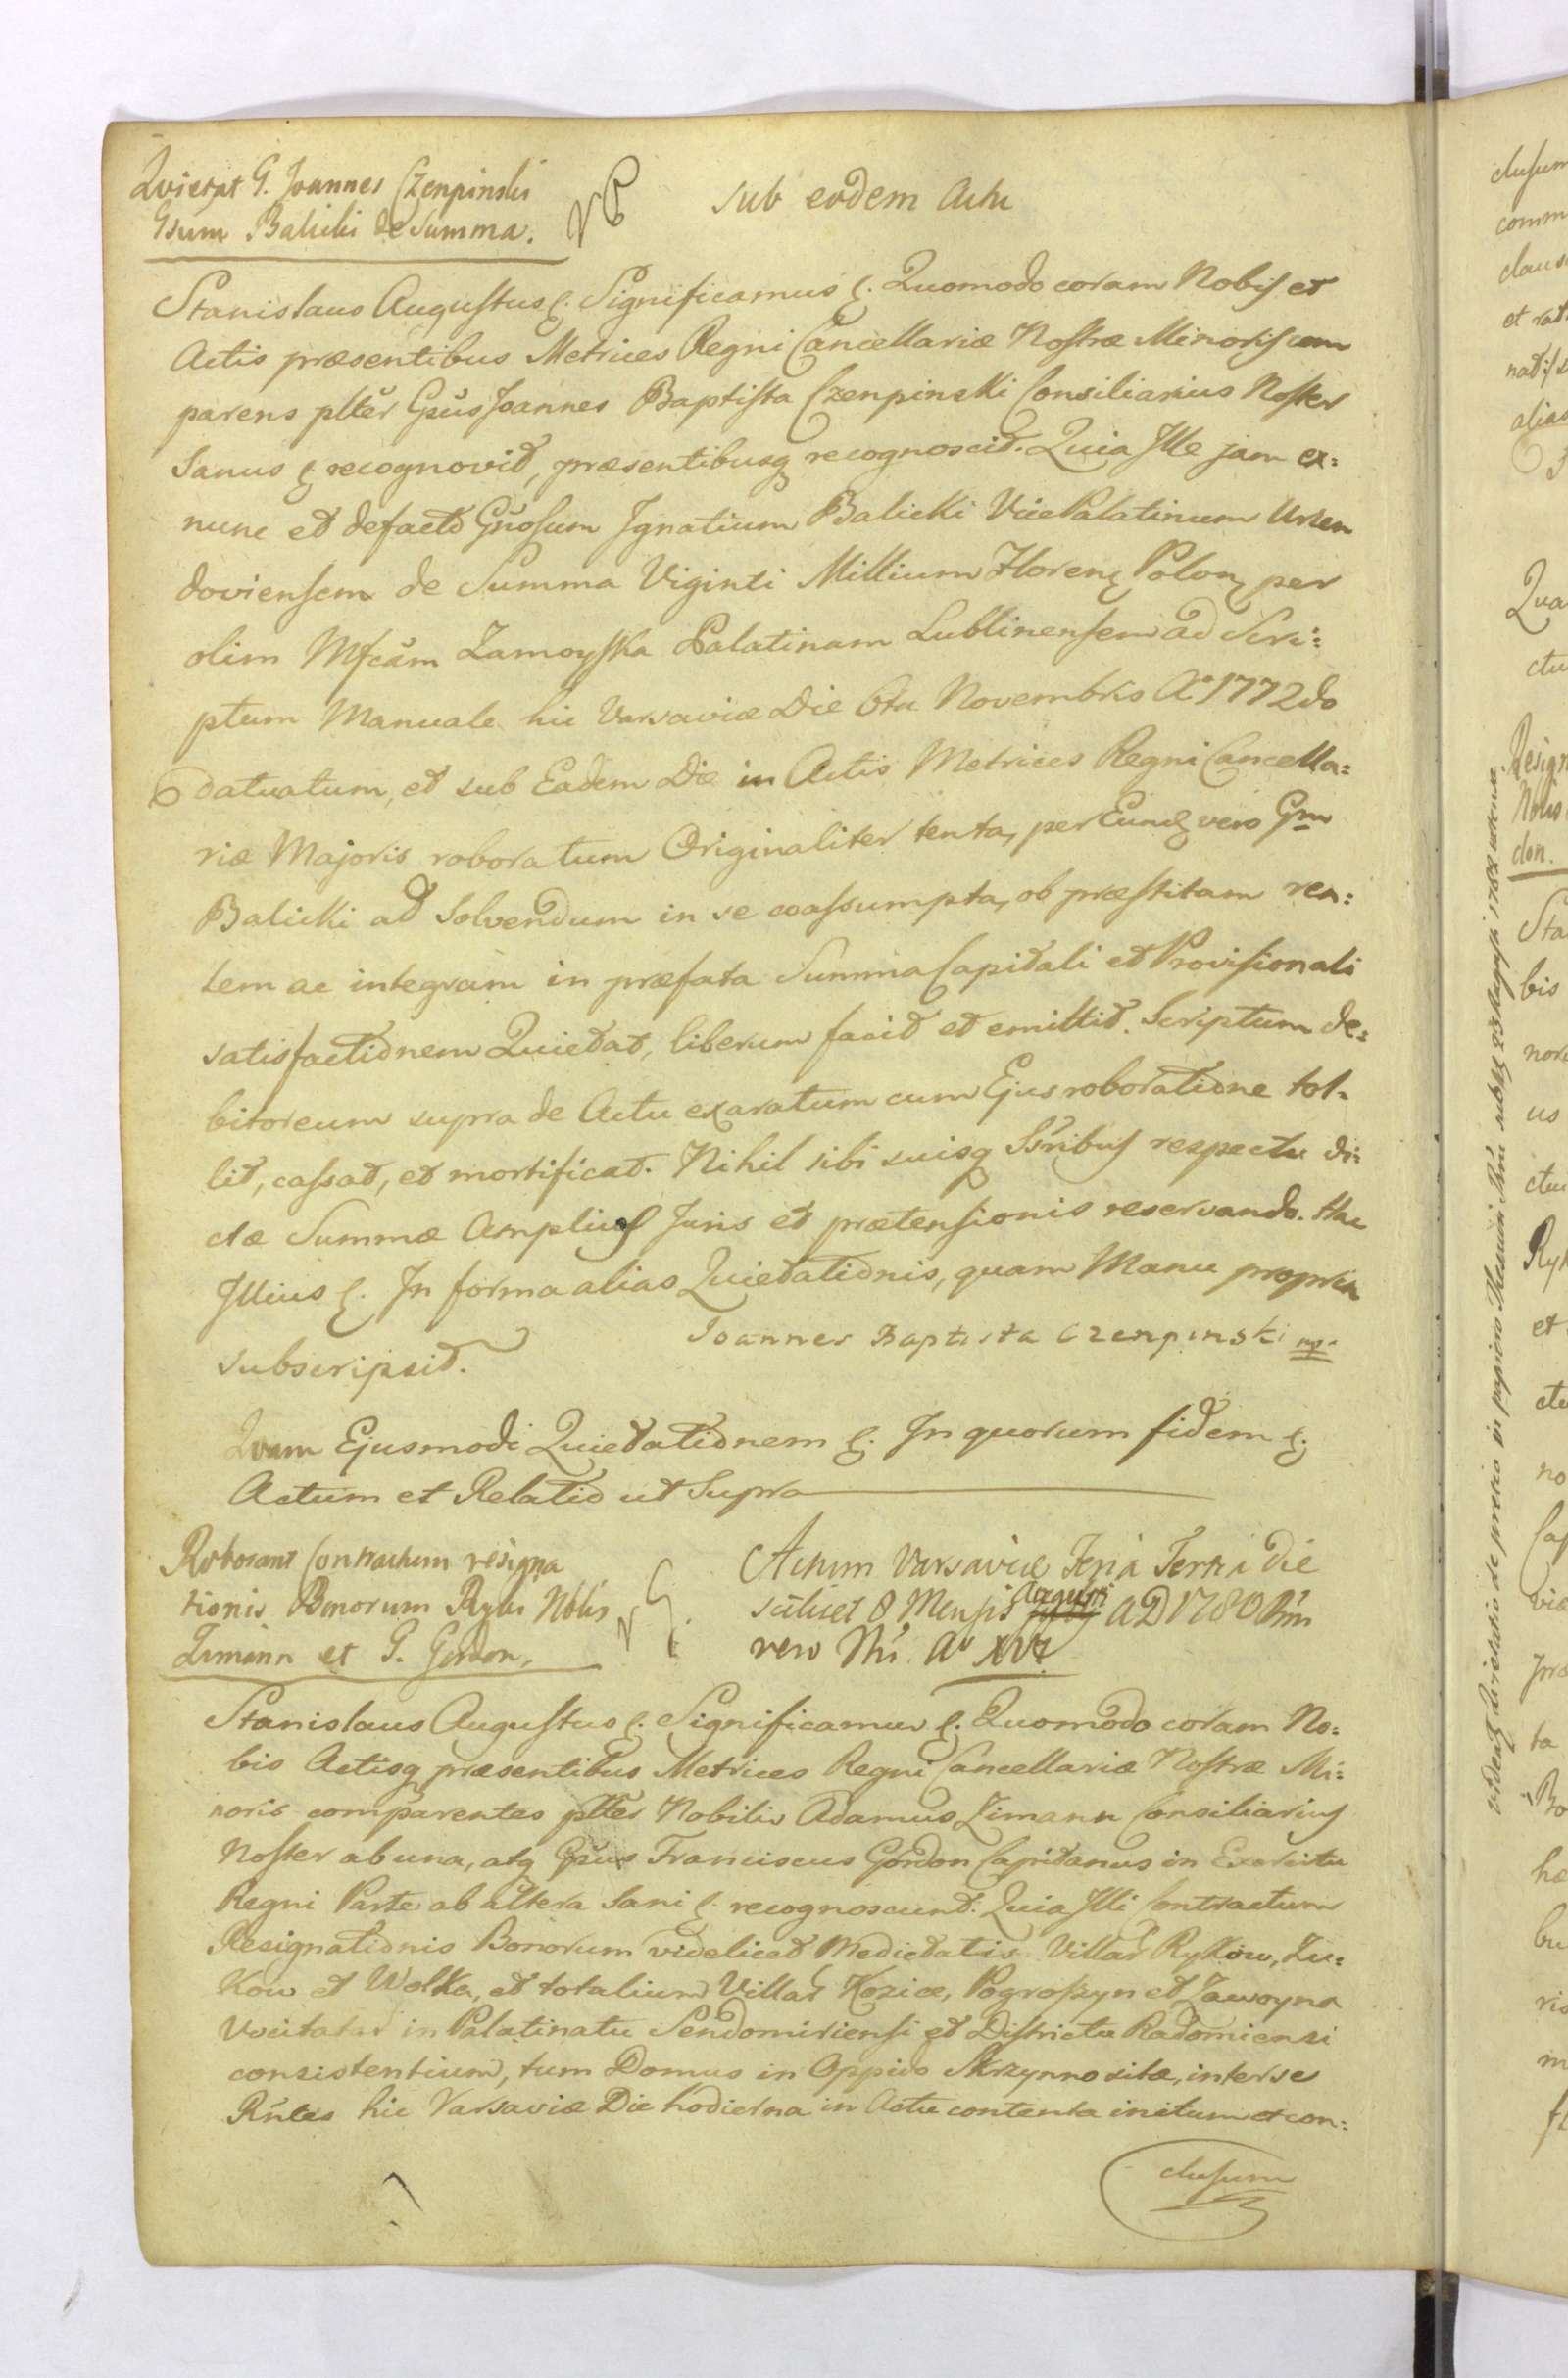 Quietat G. Joannes Czenpinski
Gsum Balicki de Summa.
Sub eodem Actu
Stanislaus Augustus Significamus Quomodo coram Nobis et
Actis præsentibus Metrices Regni Cancellariæ Nostræ Minoris com
parens plter Gsus Joannes Baptista Czenpinski Consiliarius Noster
Sanus recognovit, præsentibusq recognoscit. Quia Ille jam ex=
nunc et defacto Gnosum Ignatium Balicki VicePalatinum Urzen
doviensem de Summa Viginti Millium Floren Polon per
olim Mfcam Zamoyska Palatinam Lublinensem ad Scri=
ptum Manuale hic Varsaviæ Die 6ta Novembris Ao 1772do
datuatum, et sub Eadem Die in Actis Metrices Regni Cancella=
riæ Majoris roboratum Originaliter tenta, per Eund vero Gm
Balicki ad Solvendum in se coassumpta, ob præstitam rea=
lem ac integram in præfata Summa Capitali et Provisionali
satisfactionem Quietat, liberum facit et emittit. Scriptum de=
bitoreum supra de Actu exaratum cum Ejus roboratione tol=
lit, cassat, et mortificat. Nihil sibi suisq Ssribus respectu di=
ctæ Summæ Amplius Juris et prætensionis reservando. Hac
Illius In forma alias Quietationis, quam Manu propria
subscripsit.
Joannes Baptista Czenpinski mp.
Quam Ejusmodi Quietationem In quorum fidem
Actum et Relatio ut Supra
Roborant Contractum resigna
tionis Bonorum Ryki Nblis
Zimann et G. Gordon.
Actum Varsaviæ Feria Tertia Die
scilicet 8 Mensis Augusti AD 1780 Rni
vero Nri Ao XVI
Stanislaus Augustus Significamus Quomodo coram No=
bis Actisq præsentibus Metrices Regni Cancellariæ Nostræ Mi=
noris comparentes plter Nobilis Adamus Zimann Consiliarius
Noster ab una, atq Gsus Franciscus Gordon Capitanus in Exercitu
Regni Parte ab altera Sani recognoscunt. Quia Illi Contractum
Resignationis Bonorum videlicet Medietatis Villar Rykow, Zu=
kow et Wolka, et totalium Villar Kozice, Pogroszyn et Zawoyna
Vocitatar in Palatinatu Sendomiriensi et Districtu Radomiensi
consistentium, tum Domus in Oppido Skrzynno sitæ, inter se
Rntes hic Varsaviæ Die hodierna in Actu contenta initum et con=
clusum
videatq Quietatio de pretio in papiero
1782
clusum
comm
claus
et rat
alias
Qua
ctu
Resign
Nblis
don.
Sta
bis
nor
us
ctu
Ryk
et
cte
no
Cap
viæ
præ
ta
Bo
hæ
bu
ris
m